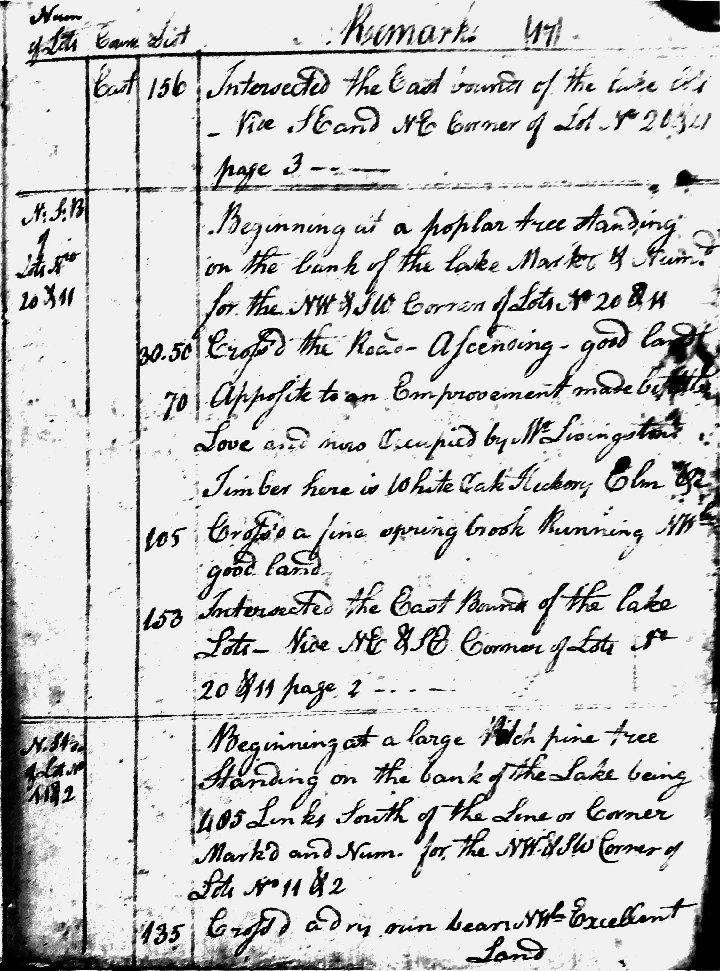 Num of Lots Cours Dist Remarks (17)
East 156 Intersected the East bounds of the lake Lots
- Vice SE and NE Corner of Lot No 20 & 21
page 3 - - -
N. S. B Beginning at a poplar tree standing
of on the bank of the lake Markd & Numd
Lots Nro
20 & 11 for the NW & SW Corner of Lots No 20 & 11
30.50 Cross'd the Road - Ascending - good land
70 Apposite to an Emprovement made by
Love and now Occupied by Mr Livingston
Timber here is White Oak Hickory Elm &c
105 Cross'd a fine spring brook Running NWly
good land
153 Intersected the East Bound of the lake
Lots - Vice NE & SE Corner of Lots No
20 & 11 page 2 - - - -
Beginning at a large Pitch pine tree
of Lot No Standing on the bank of the Lake being
11 & 2 405 Links South of the Line or Corner
Mark'd and Num. for the NW & SW Corner of
Lots No 11 & 2
135 Cross'd a dry run bears NWly Excellent
Land